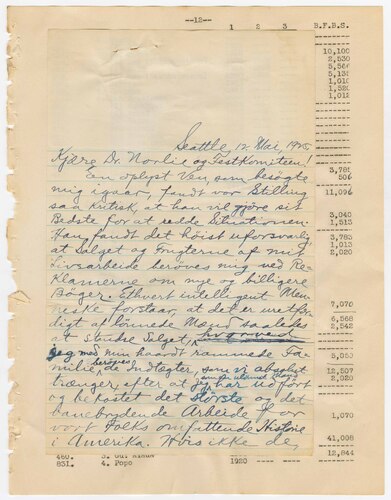 --12--
1 2 3 B.F.B.S.
10,100
2,530
5,560
5,135
1,010
1,520
1,012
Seattle, 12. Mai, 1925
Kjære Dr. Norlie og Festkomiteen!
En oplyst Ven som besøgte
3,785
506
mig igaar, fandt vor Stilling
11,096
saa kritisk, at han vil gjøre sit
Bedste for at redde Situationen.
3,040
1,513
Han fandt det höist uforsvarlig
3,783
at Salget og Frugterne af mit
1,013
2,020
Livsarbeide berøves mig ved Re-
klamerne om nye og billigere
Bøger. Ethvert intelligent Men-
7,070
neske forstaar, at det er uretfær-
6,568
digt af lønnede Mænd saaledes
2,542
at standse Salget,
jeg med min haardt rammede Fa-
5,053
milie, berøves de Indtægter, som vi absolut
12,507
trænger, efter at jeg har udført
2,020
og bekostet det største og det
banebrydende Arbeide for
1,070
vort Folks omfattende Historie
i Amerika. Hvis ikke de,
41,008
12,844
460. 3.
831. 4. Popo 1920